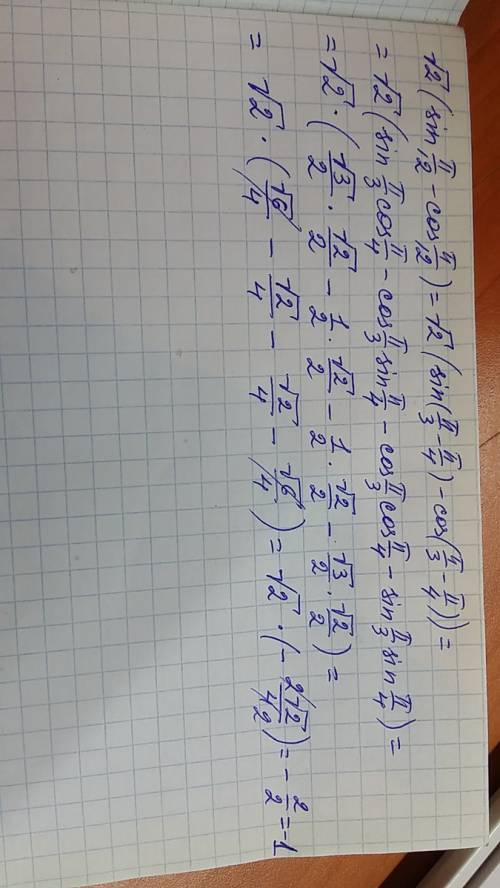 √2(sin π/12 - cos π/12) = √2(sin(π/3 - π/4) - cos(π/3 - π/4)) =
= √2(sin π/3 cos π/4 - cos π/3 sin π/4 - cos π/3 cos π/4 - sin π/3 sin π/4) =
= √2 · (√3/2 · √2/2 - 1/2 · √2/2 - 1/2 · √2/2 - √3/2 · √2/2) =
= √2 · (√6/4 - √2/4 - √2/4 - √6/4) = √2 · (- 2√2/4 2) = - 2/2 = -1